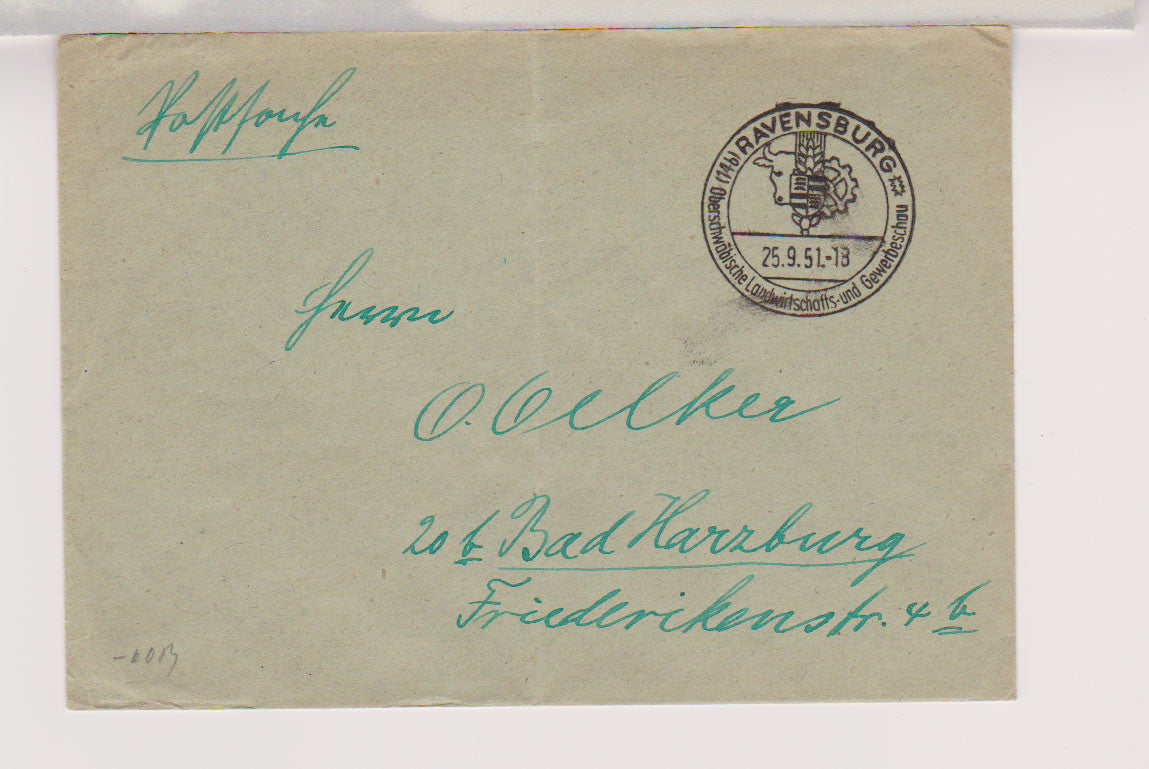 Postsache
(14b) RAVENSBURG
25.9.51.-18
Oberschwäbische Landwirtschafts- und Gewerbeschau
Herrn
O. Oelker
20 b Bad Harzburg
Friederikenstr. 4 b